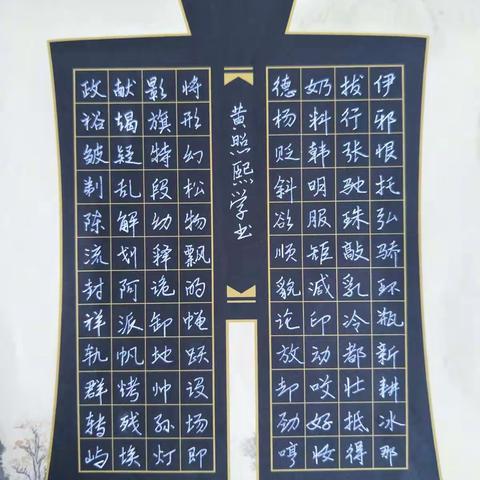 伊邪恨托弘骄环瓶新耕冰那
拔行张驰珠敲乳冷都壮抵得
奶料韩明服矩减印动哎好妆
德杨贬斜欲顺貌论放却劲哼
黄照熙学书
将形幻松物飘的蝇跃设场即
影旗特段幼释诡卸地帅孙灯
献竭疑乱解划阿派帆烤残埃
政裕皱制陈流封祥轨群转屿